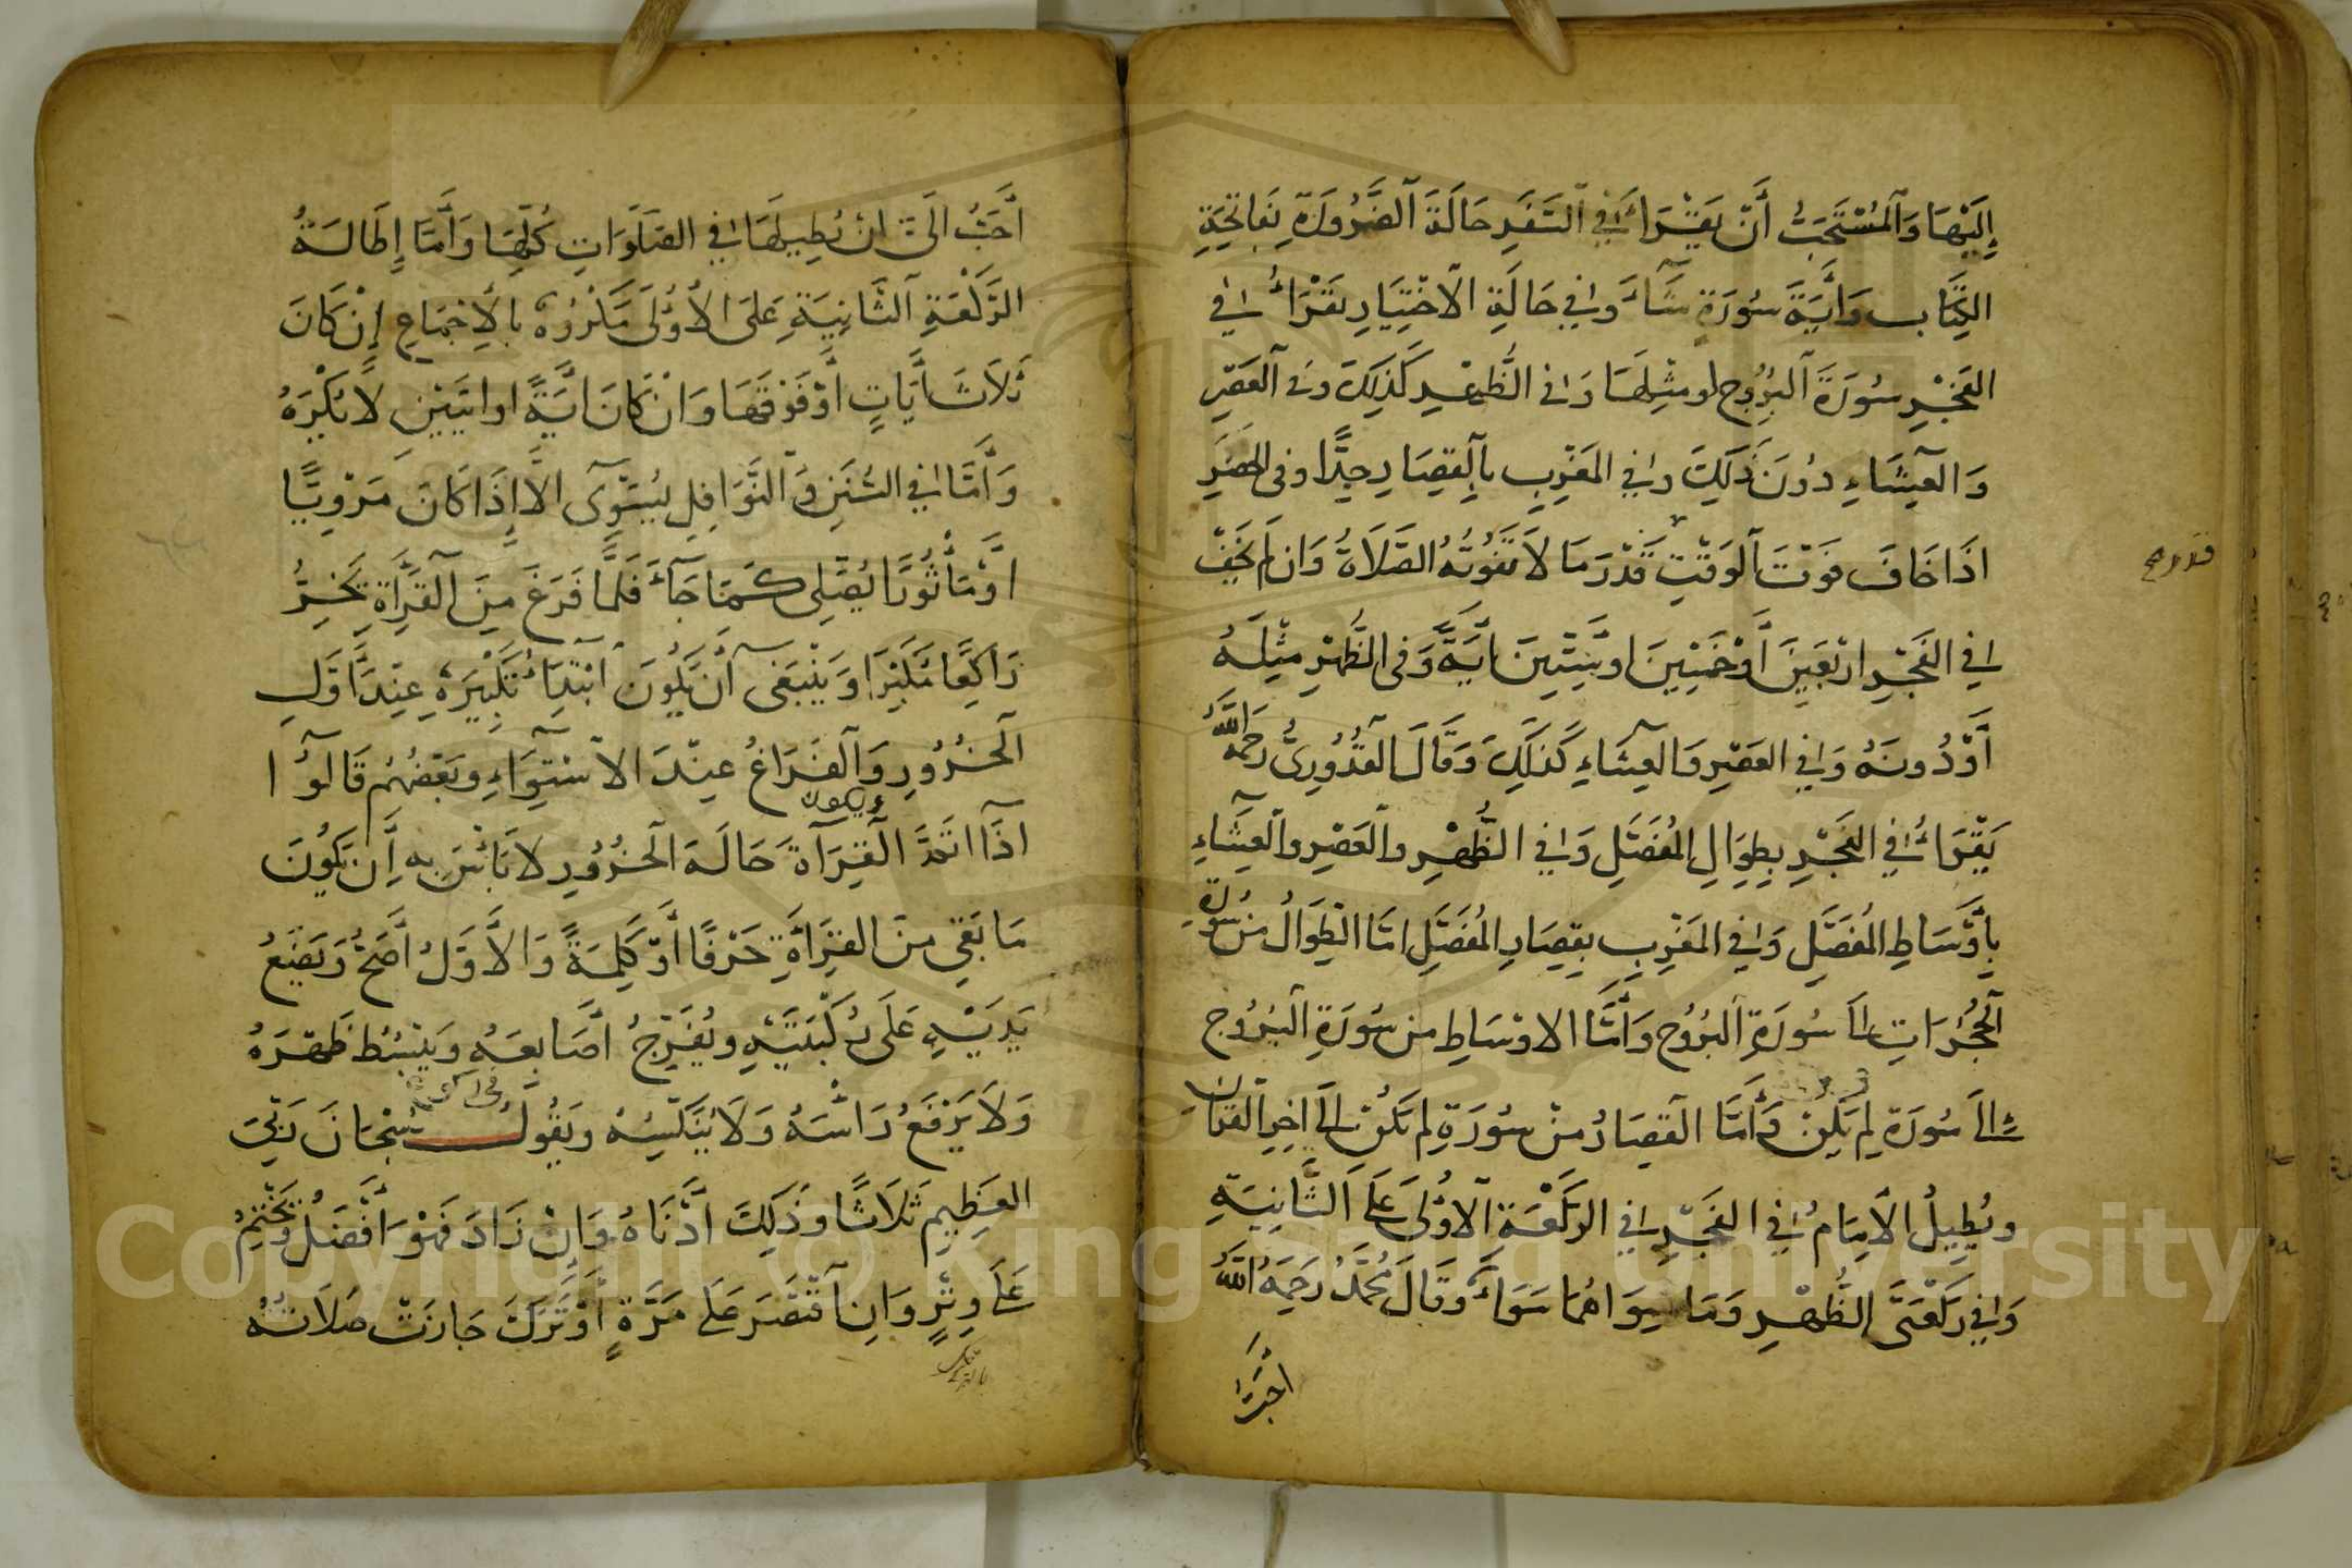 إِلَيْهَا وَالْمُسْتَحَبُّ أَنْ يَقْرَأَ فِي السَّفَرِ حَالَةَ الضَّرُورَةِ بِفَاتِحَةِ
الكِتَابِ وَأَيَّةَ سُورَةٍ شَاءَ وَفِي حَالَةِ الاخْتِيَارِ يَقْرَأُ فِي
الفَجْرِ سُورَةَ الْبُرُوجِ او مِثْلِهَا وَفِي الظُّهْرِ كَذَلِكَ وَفِي الْعَصْرِ
وَالْعِشَاءِ دُونَ ذَلِكَ وَفِي المَغْرِبِ بِالْقِصَارِ جِدًّا وفى الحضر
اذَا خَافَ فَوْتَ الْوَقْتِ قَدْرَ مَا لَا تَفُوتُهُ الصَّلَاةُ وَان لَمْ يَخَفْ
قدر صح
فِي الفَجْرِ ارْبَعِينَ أَوْ خَمْسِينَ او سِتِّينَ ايَةً وَفِي الظُّهْرِ مِثْلَهُ
أَوْ دُونَهُ وَفِي العَصْرِ وَالعِشَاءِ كَذَلِكَ وَقَالَ الْقُدُورِىُّ رَحِمَهُ اللَّهُ
يَقْرَأُ فِي الفَجْرِ بِطِوَالِ المُفَصَّلِ وَفِي الظُّهْرِ وَالْعَصْرِ وَالْعِشَاءِ
بِأَوْسَاطِ المُفَصَّلِ وَفِي المَغْرِبِ بِقِصَارِ المُفَصَّلِ امَّا الطِّوَالُ مِنْ سُورَةِ
الْحُجُرَاتِ الَى سُورَةِ الْبُرُوجِ وَأَمَّا الاوْسَاطِ مِن سُورَةِ الْبُرُوجِ
الَى سُورَةِ لم يَكُنْ وَأَمَّا الْقِصَارُ مِنْ سُورَةِ لم يَكُنْ الَى اخِرِ القران
ويُطِيلُ الْامَامُ فِي الفَجْرِ فِي الرَّكْعَةِ الْأُولَى عَلَى الثَّانِيَةِ
وَفِي رَكْعَتَى الظُّهْرِ وَمَا سِوَاهُمَا سَوَاءٌ وَقَالَ مُحَمَّدٌ رَحِمَهُ اللَّهُ
احَبُّ
أَحَبُّ الَىَّ انْ يُطِيلَهَا فِي الصَّلَوَاتِ كُلِّهَا وَأَمَّا إِطَالَةُ
الرَّكْعَةِ الثَّانِيَةِ عَلَى الأُولَى مَكْرُوهٌ بِالْإِجْمَاعِ إِنْ كَانَ
ثَلَاثَ أَيَاتٍ أَوْ فَوْقَهَا وَانْ كَانَ ايَةً او ايَتَيْنِ لَا يُكْرَهُ
وَأَمَّا فِي السُّنَنِ وَالنَّوَافِلِ يُسَوِّى الَّا إِذَا كَانَ مَرْوِيًّا
اوْ مَأْثُورًا يُصَلِّى كَمَا جَاءَ فَلَمَّا فَرَغَ مِنَ الْقِرَأَةِ يَخِرُّ
رَاكِعًا مُكَبِّرًا وَيَنْبَغِى أَنْ يَكُونَ ابْتِدَاءُ تَكْبِيرِهِ عِنْدَ أَوَّلِ
الْخُرُورِ وَالْفَرَاغُ عِنْدَ الاسْتِوَاءِ وبَعْضُهُمْ قَالُوا
اذَا اتَمَّ الْقِرَأَةَ حَالَةَ الْخُرُورِ لَا بَأْسَ بِهِ أَن يَكُونَ
مَا بَقِيَ مِنَ القِرَأَةِ حَرْفًا أَوْ كَلِمَةً وَالْأَوَّلُ أَصَحُّ وَيَضَعُ
يَدَيْهِ عَلَى رُكْبَتَيْهِ ويُفَرِّجُ أَصَابِعَهُ وَيَبْسُطُ ظَهْرَهُ
وَلَا يَرْفَعُ رَأْسَهُ وَلَا يُنَكِّسُهُ ويَقُولُ سُبْحَانَ رَبِّيَ
العَظِيمِ ثَلَاثًا وَذَلِكَ أَدْنَاهُ وَانْ زَادَ فَهُوَ أَفْضَلُ وَيَخْتِمُ
عَلَى وِتْرٍ وَانِ اقْتَصَرَ عَلَى مَرَّةٍ أَوْ تَرَكَ جَازَتْ صَلَاتُهُ
Copyright © King Saud University